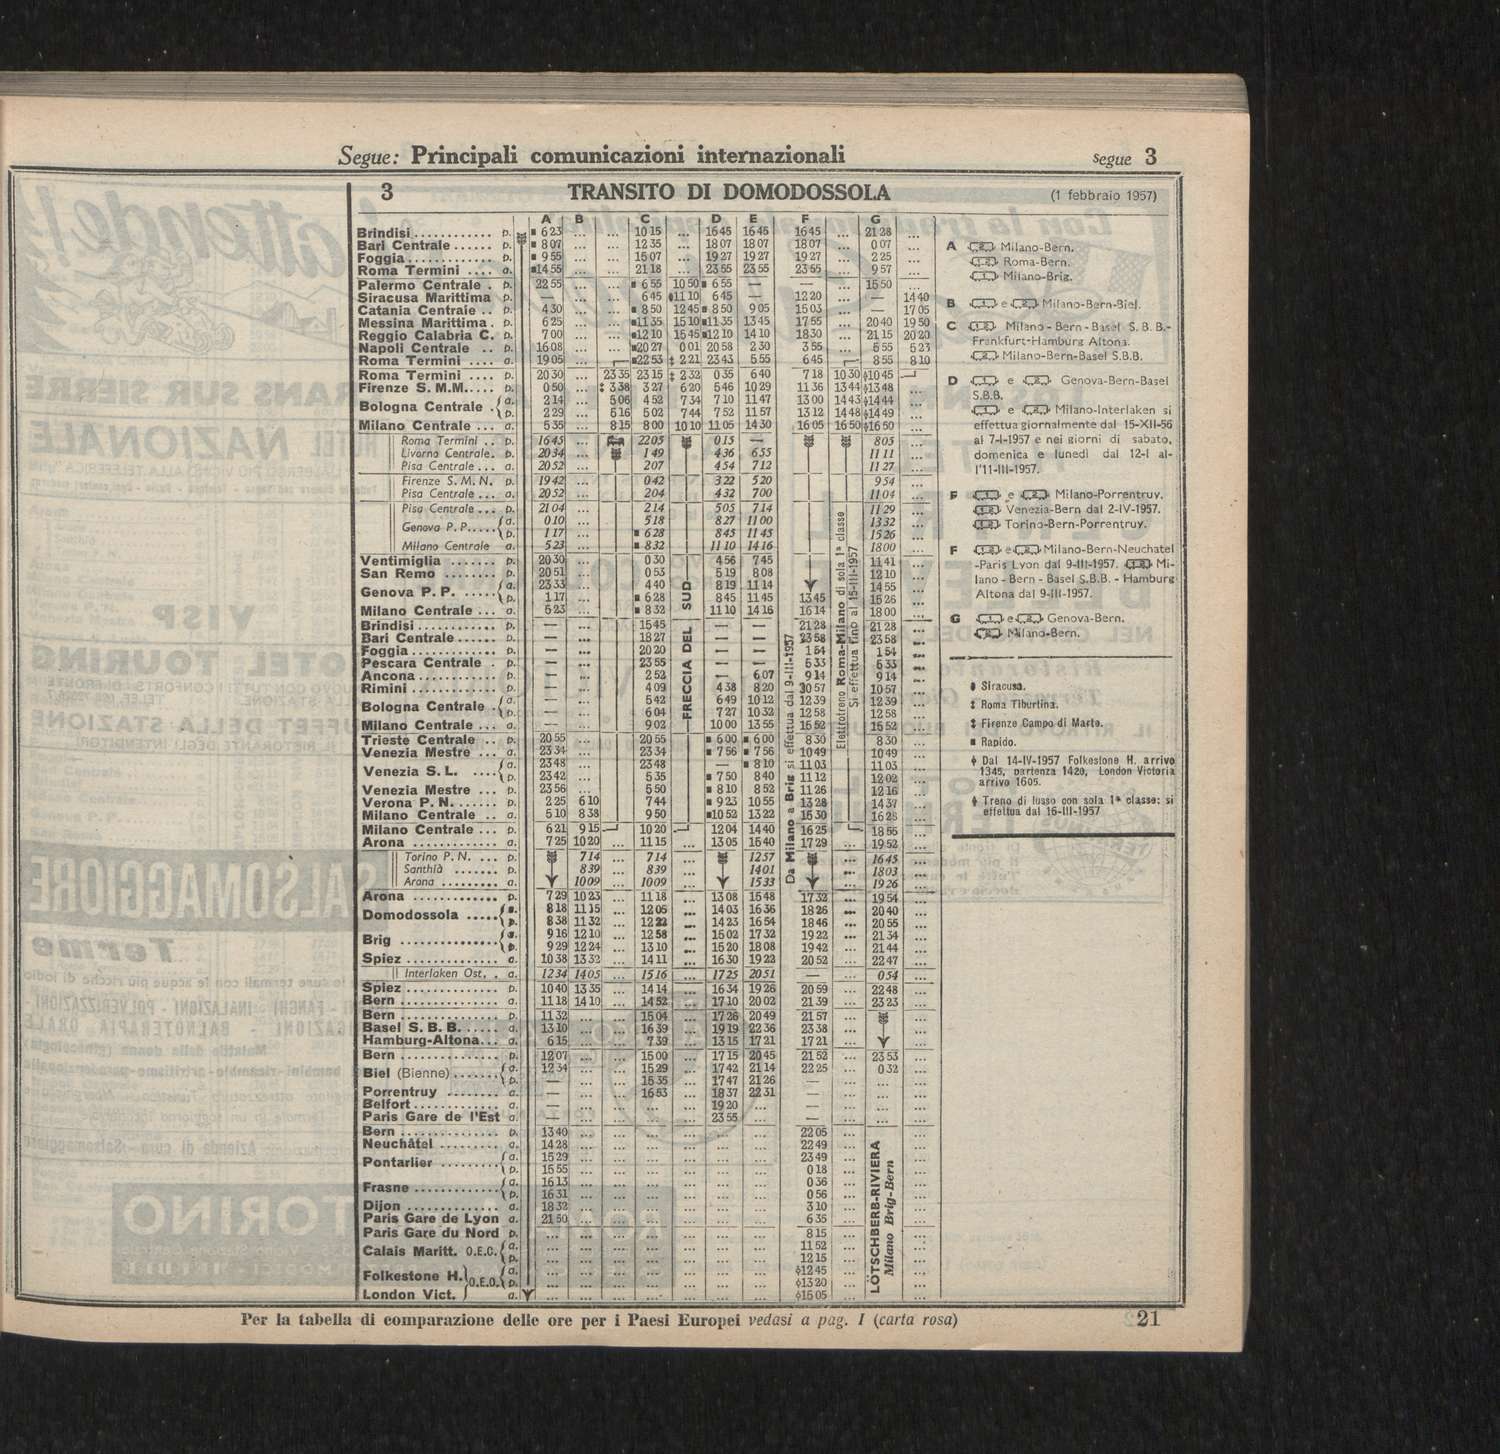 Segue: Principali comunicazioni internazionali segue 3
3 TRANSITO DI DOMODOSSOLA (1 febbraio 1957)
A B C D E F G
Brindisi p. 6 23 ... ... 10 15 ... 16 45 16 45 16 45 ... 21 28 ...
Bari Centrale p. 8 07 ... ... 12 35 ... 18 07 18 07 18 07 ... 0 07 ...
Foggia p. 9 55 ... ... 15 07 ... 19 27 19 27 19 27 ... 2 25 ...
Roma Termini a. 14 55 ... ... 21 18 ... 23 55 23 55 23 55 ... 9 57 ...
Palermo Centrale p. 22 55 ... ... 6 55 10 50 6 55 — — ... 15 50 ...
Siracusa Marittima p. — ... ... 6 45 11 10 6 45 — 12 20 ... — 14 40
Catania Centrale p. 4 30 ... ... 8 50 12 45 8 50 9 05 15 03 ... — 17 05
Messina Marittima p. 6 25 ... ... 11 35 15 10 11 35 13 45 17 55 ... 20 40 19 50
Reggio Calabria C. p. 7 00 ... ... 12 10 15 45 12 10 14 10 18 30 ... 21 15 20 20
Napoli Centrale p. 16 08 ... ... 20 27 0 01 20 58 2 30 3 55 ... 5 55 5 23
Roma Termini a. 19 05 ... 22 53 2 21 23 43 5 55 6 45 8 55 8 10
Roma Termini p. 20 30 ... 23 35 23 15 2 32 0 35 6 40 7 18 10 30 10 45
Firenze S. M. N. p. 0 50 ... 3 38 3 27 6 20 5 46 10 29 11 36 13 44 13 48 ...
Bologna Centrale a. 2 14 ... 5 06 4 52 7 34 7 10 11 47 13 00 14 43 14 44 ...
p. 2 29 ... 5 16 5 02 7 44 7 52 11 57 13 12 14 48 14 49 ...
Milano Centrale a. 5 35 ... 8 15 8 00 10 10 11 05 14 30 16 05 16 50 16 50 ...
Roma Termini p. 16 45 ... 22 05 0 15 — 8 05 ...
Livorno Centrale p. 20 34 ... 1 49 4 36 6 55 11 11 ...
Pisa Centrale a. 20 52 ... 2 07 4 54 7 12 11 27 ...
Firenze S. M. N. p. 19 42 ... 0 42 3 22 5 20 9 54 ...
Pisa Centrale a. 20 52 ... 2 04 4 32 7 00 11 04 ...
Pisa Centrale p. 21 04 ... 2 14 5 05 7 14 11 29 ...
Genova P. P. a. 0 10 ... 5 18 8 27 11 00 13 32 ...
p. 1 17 ... 6 28 8 45 11 45 15 26 ...
Milano Centrale a. 5 23 ... 8 32 11 10 14 16 18 00 ...
Ventimiglia p. 20 30 ... 0 30 4 56 7 45 11 41 ...
San Remo p. 20 51 ... 0 53 5 19 8 08 12 10 ...
Genova P. P. a. 23 33 ... 4 40 8 19 11 14 14 55 ...
p. 1 17 ... 6 28 8 45 11 45 13 45 15 26 ...
Milano Centrale a. 5 23 ... 8 32 11 10 14 16 16 14 18 00 ...
Brindisi p. — ... 15 45 — — 21 28 21 28 ...
Bari Centrale p. — ... 18 27 — — 23 58 23 58 ...
Foggia p. — ... 20 20 — — 1 54 1 54 ...
Pescara Centrale p. — ... 23 55 — — 5 33 5 33 ...
Ancona p. — ... 2 52 — 6 07 9 14 9 14 ...
Rimini p. — ... 4 09 4 38 8 20 10 57 10 57 ...
Bologna Centrale a. — ... 5 42 6 49 10 12 12 39 12 39 ...
p. — ... 6 04 7 27 10 32 12 58 12 58 ...
Milano Centrale a. — ... 9 02 10 00 13 55 15 52 15 52 ...
Trieste Centrale p. 20 55 ... 20 55 6 00 6 00 8 30 8 30 ...
Venezia Mestre a. 23 34 ... 23 34 7 56 7 56 10 49 10 49 ...
Venezia S. L. a. 23 48 ... 23 48 — 8 10 11 03 11 03 ...
p. 23 42 ... 5 35 7 50 8 40 11 12 12 02 ...
Venezia Mestre p. 23 56 ... 5 50 8 10 8 52 11 26 12 16 ...
Verona P. N. p. 2 25 6 10 7 44 9 23 10 55 13 28 14 37 ...
Milano Centrale a. 5 10 8 38 9 50 10 52 13 22 15 30 16 28 ...
Milano Centrale p. 6 21 9 15 10 20 12 04 14 40 16 25 18 55 ...
Arona a. 7 25 10 20 ... 11 15 ... 13 05 15 40 17 29 ... 19 52 ...
Torino P. N. p. 7 14 ... 7 14 ... 12 57 ... 16 45 ...
Santhià p. 8 39 ... 8 39 ... 14 01 ... 18 03 ...
Arona a. 10 09 ... 10 09 ... 15 33 ... 19 26 ...
Arona p. 7 29 10 23 ... 11 18 ... 13 08 15 48 17 32 ... 19 54 ...
Domodossola a. 8 18 11 15 ... 12 05 ... 14 03 16 36 18 26 ... 20 40 ...
p. 8 38 11 32 ... 12 22 ... 14 23 16 54 18 46 ... 20 55 ...
Brig a. 9 16 12 10 ... 12 58 ... 15 02 17 32 19 22 ... 21 34 ...
p. 9 29 12 24 ... 13 10 ... 15 20 18 08 19 42 ... 21 44 ...
Spiez a. 10 38 13 32 ... 14 11 ... 16 30 19 22 20 52 ... 22 47 ...
Interlaken Ost. a. 12 34 14 05 ... 15 16 ... 17 25 20 51 — ... 0 54 ...
Spiez p. 10 40 13 35 ... 14 14 ... 16 34 19 26 20 59 ... 22 48 ...
Bern a. 11 18 14 10 ... 14 52 ... 17 10 20 02 21 39 ... 23 23 ...
Bern p. 11 32 ... ... 15 04 ... 17 26 20 49 21 57 ... ...
Basel S. B. B. a. 13 10 ... ... 16 39 ... 19 19 22 36 23 38 ... ...
Hamburg-Altona a. 6 15 ... ... 7 39 ... 13 15 17 21 17 21 ... ...
Bern p. 12 07 ... ... 15 00 ... 17 15 20 45 21 52 ... 23 53 ...
Biel (Bienne) a. 12 34 ... ... 15 29 ... 17 42 21 14 22 25 ... 0 32 ...
p. — ... ... 15 35 ... 17 47 21 26 — ... ... ...
Porrentruy a. — ... ... 16 53 ... 18 37 22 31 — ... ... ...
Belfort a. — ... ... ... ... 19 20 ... — ... ... ...
Paris Gare de l'Est a. — ... ... ... ... 23 55 ... — ... ... ...
Bern p. 13 40 ... ... ... ... ... ... 22 05 ... ...
Neuchâtel a. 14 28 ... ... ... ... ... ... 22 49 ... ...
Pontarlier a. 15 29 ... ... ... ... ... ... 23 49 ... ...
p. 15 55 ... ... ... ... ... ... 0 18 ... ...
Frasne a. 16 13 ... ... ... ... ... ... 0 36 ... ...
p. 16 31 ... ... ... ... ... ... 0 56 ... ...
Dijon a. 18 32 ... ... ... ... ... ... 3 10 ... ...
Paris Gare de Lyon a. 21 50 ... ... ... ... ... ... 6 35 ... ...
Paris Gare du Nord p. ... ... ... ... ... ... ... 8 15 ... ...
Calais Maritt. O.E.C. a. ... ... ... ... ... ... ... 11 52 ... ...
p. ... ... ... ... ... ... ... 12 15 ... ...
Folkestone H. O.E.O. a. ... ... ... ... ... ... ... 12 45 ... ...
p. ... ... ... ... ... ... ... 13 20 ... ...
London Vict. a. ... ... ... ... ... ... ... 15 05 ... ...
FRECCIA DEL SUD
Da Milano a Brig si effettua dal 9-III-1957
Elettrotreno Roma-Milano di sola 1ª classe
Si effettua fino al 15-III-1957
LÖTSCHBERG-RIVIERA
Milano Brig-Bern
A Milano-Bern.
Roma-Bern.
Milano-Brig.
B e Milano-Bern-Biel.
C Milano - Bern - Basel S. B. B.-
Frankfurt-Hamburg Altona.
Milano-Bern-Basel S.B.B.
D e Genova-Bern-Basel
S.B.B.
e Milano-Interlaken si
effettua giornalmente dal 15-XII-56
al 7-I-1957 e nei giorni di sabato,
domenica e lunedì dal 12-I al-
l'11-III-1957.
F e Milano-Porrentruy.
Venezia-Bern dal 2-IV-1957.
Torino-Bern-Porrentruy.
F e Milano-Bern-Neuchatel
-Paris Lyon dal 9-III-1957. Mi-
lano - Bern - Basel S.B.B. - Hamburg
Altona dal 9-III-1957.
G e Genova-Bern.
Milano-Bern.
Siracusa.
Roma Tiburtina.
Firenze Campo di Marte.
Rapido.
Dal 14-IV-1957 Folkestone H. arrivo
1345, partenza 1420, London Victoria
arrivo 1605.
Treno di lusso con sola 1ª classe: si
effettua dal 16-III-1957
Per la tabella di comparazione delle ore per i Paesi Europei vedasi a pag. I (carta rosa) 21